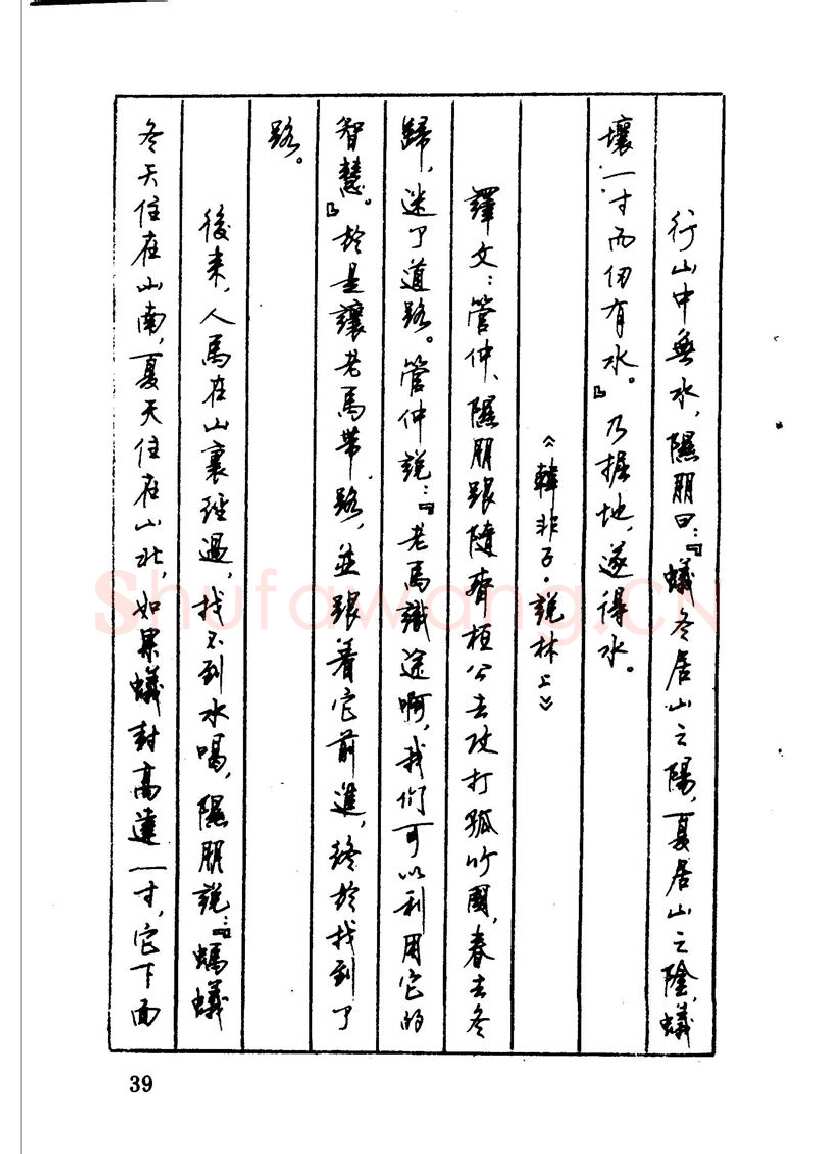 行山中無水，隰朋曰：『蟻冬居山之陽，夏居山之陰，蟻
壤一寸而仞有水。』乃掘地，遂得水。
《韓非子·説林上》
譯文：管仲、隰朋跟隨齊桓公去攻打孤竹國，春去冬
歸，迷了道路。管仲説：『老馬識途啊，我們可以利用它的
智慧。』於是讓老馬帶路，並跟着它前進，終於找到了
路。
後来，人馬在山裏經過，找不到水喝，隰朋説：『螞蟻
冬天住在山南，夏天住在山北，如果蟻封高達一寸，它下面
39
Shufawang.CN